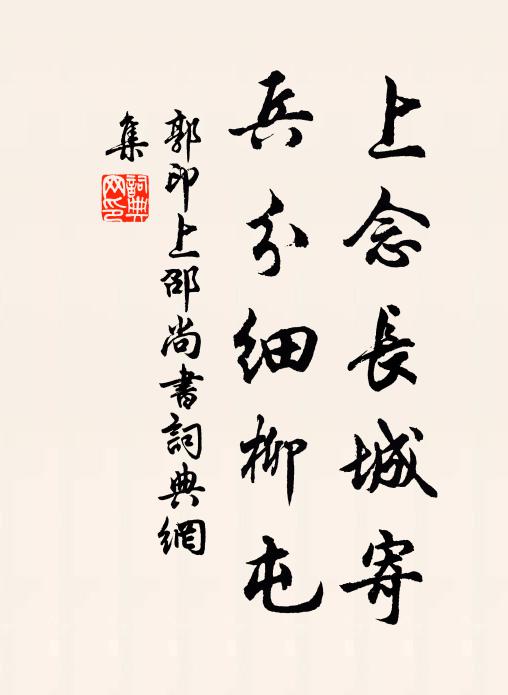 上念長城寄
兵分細柳屯
郭印上邵尚書詞典網
集
詞典
網印